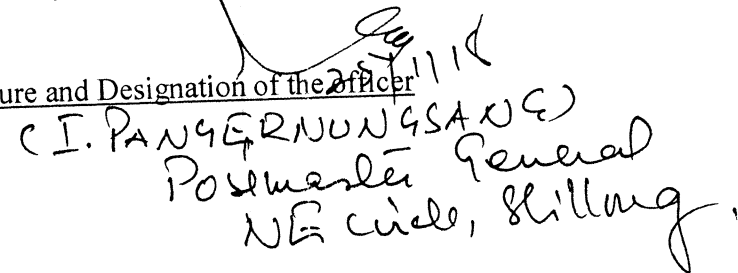 ure and Designation of the officer
(I. PANGERNUNGSANG)
Postmaster General
NE Circle, Shillong.